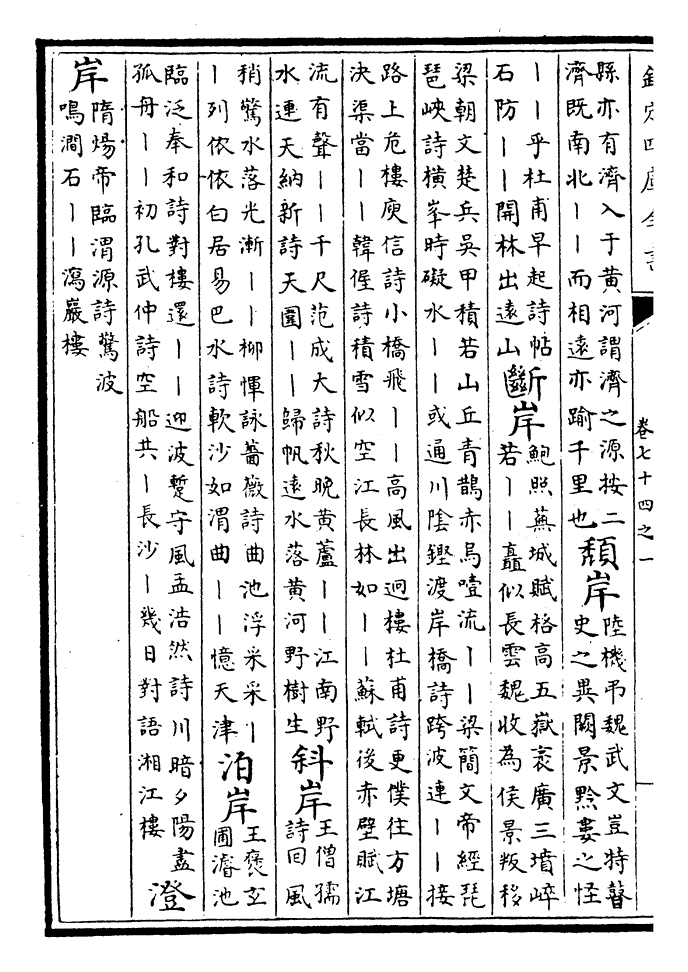 欽定四庫全書　卷七十四之一
縣亦有濟入于黃河謂濟之源按二
濟既南北丨丨而相遠亦踰千里也
頹岸
陸機弔魏武文豈特瞽
史之異闕景黔婁之怪
丨丨乎杜甫早起詩帖
石防丨丨開林出遠山
斷岸
鮑照蕪城賦格高五嶽袤廣三墳崒
若丨丨矗似長雲魏收為侯景叛移
梁朝文楚兵吳甲積若山丘青鵲赤烏噎流丨丨梁簡文帝經琵
琶峽詩橫峯時礙水丨丨或通川陰鏗渡岸橋詩跨波連丨丨接
路上危樓庾信詩小橋飛丨丨高風出迥樓杜甫詩更僕往方塘
決渠當丨丨韓偓詩積雪似空江長林如丨丨蘇軾後赤壁賦江
流有聲丨丨千尺范成大詩秋晚黃蘆丨丨江南野
水連天納新詩天圍丨丨歸帆遠水落黃河野樹生
斜岸
王僧孺
詩回風
稍驚水落光漸丨丨柳惲詠薔薇詩曲池浮米采丨
丨列依依白居易巴水詩軟沙如渭曲丨丨憶天津
泊岸
王褒玄
圃濬池
臨泛奉和詩對樓還丨丨迎波蹔守風孟浩然詩川暗夕陽盡
孤舟丨丨初孔武仲詩空船共丨長沙丨幾日對語湘江樓
澄
岸
隋煬帝臨渭源詩驚波
鳴澗石丨丨瀉巖樓